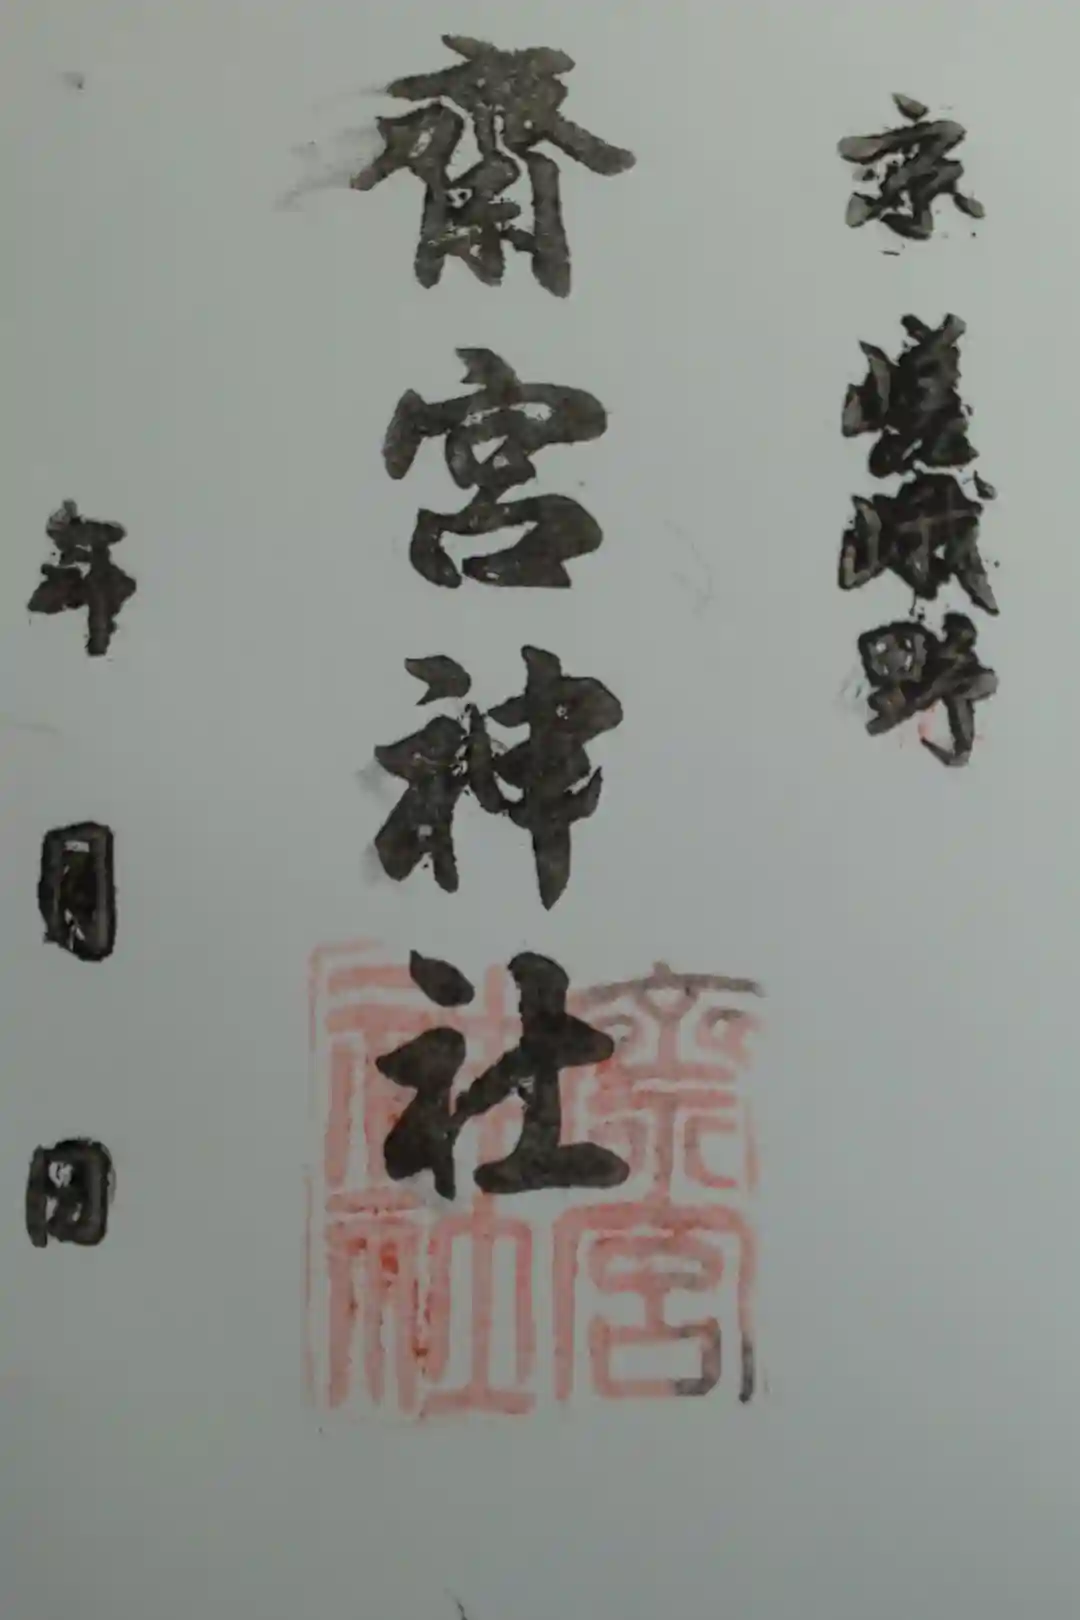 京 嵯峨野
齋宮神社
齋宮
神社
年 月 日